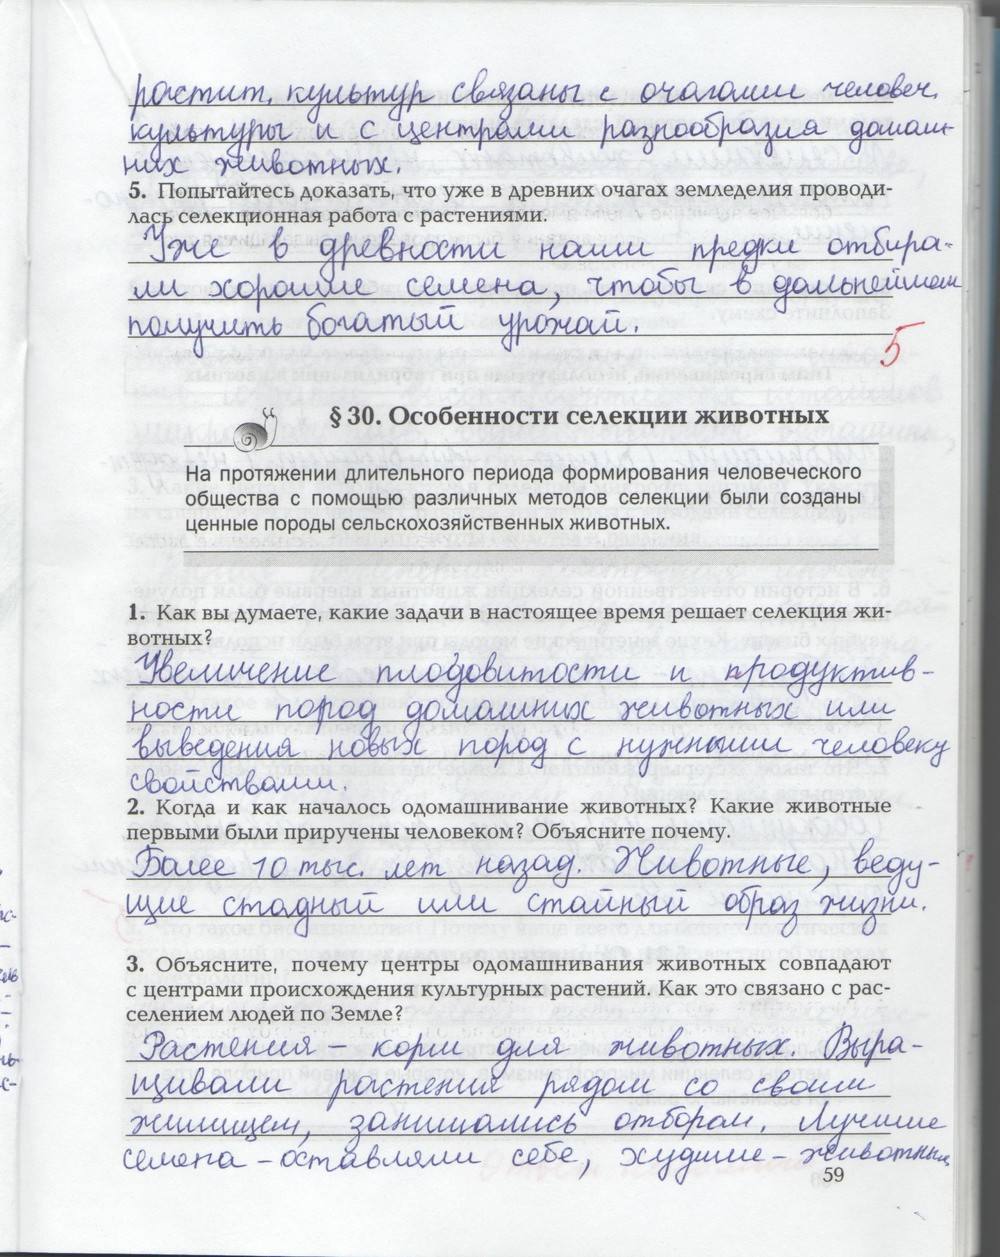 растит. культур связаны с очагами человеч.
культуры и с центрами разнообразия домаш-
них животных.
5. Попытайтесь доказать, что уже в древних очагах земледелия проводи-
лась селекционная работа с растениями.
Уже в древности наши предки отбира-
ли хорошие семена, чтобы в дальнейшем
получить богатый урожай.
5
§ 30. Особенности селекции животных
На протяжении длительного периода формирования человеческого
общества с помощью различных методов селекции были созданы
ценные породы сельскохозяйственных животных.
1. Как вы думаете, какие задачи в настоящее время решает селекция жи-
вотных?
Увеличение плодовитости и продуктив-
ности пород домашних животных или
выведения новых пород с нужными человеку
свойствами.
2. Когда и как началось одомашнивание животных? Какие животные
первыми были приручены человеком? Объясните почему.
Более 10 тыс. лет назад. Животные, веду-
щие стадный или стайный образ жизни.
3. Объясните, почему центры одомашнивания животных совпадают
с центрами происхождения культурных растений. Как это связано с рас-
селением людей по Земле?
Растения – корм для животных. Выра-
щивали растения рядом со своим
жилищем, занимались отбором. Лучшие
семена – оставляли себе, худшие – животным
59